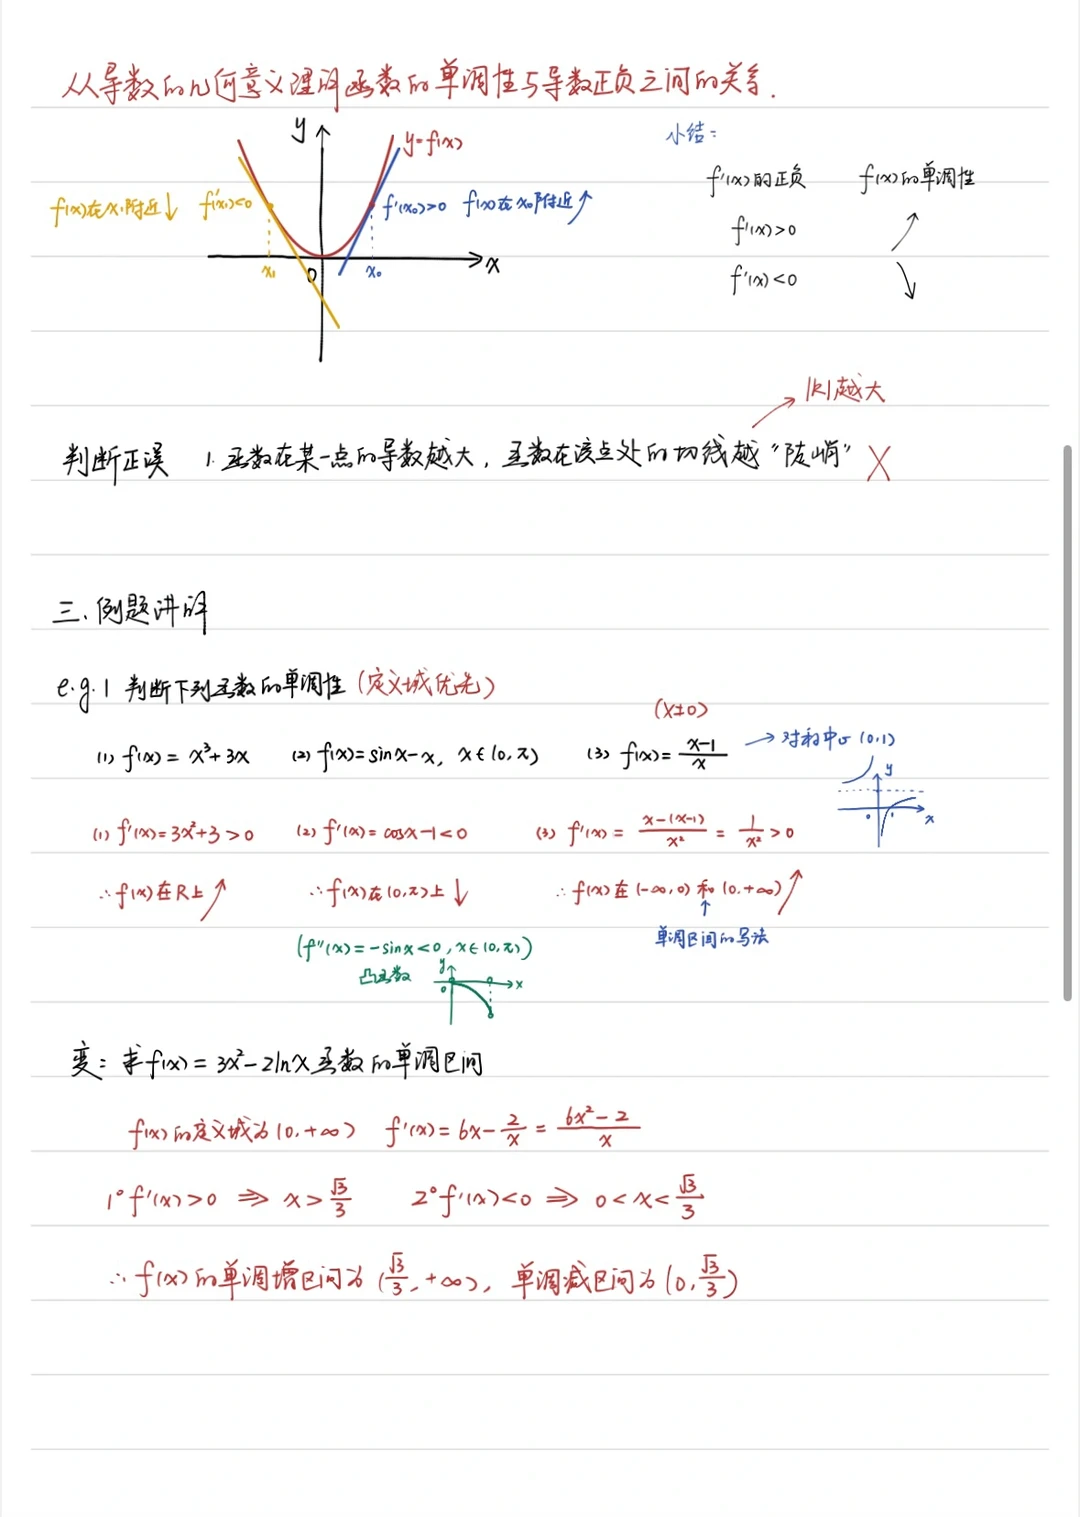 从导数的几何意义理解函数的单调性与导数正负之间的关系.
y
y=f(x)
小结:
f'(x)的正负 f(x)的单调性
f(x)在x₁附近↓ f'(x₁)<0 f'(x₀)>0 f(x)在x₀附近↗
f'(x)>0 ↗
x₁ 0 x₀ x
f'(x)<0 ↘
|k|越大
判断正误 1. 函数在某一点的导数越大, 函数在该点处的切线越“陡峭” X
三、例题讲解
e.g.1 判断下列函数的单调性 (定义域优先)
(x≠0)
(1) f(x) = x³+3x (2) f(x)=sinx-x, x∈(0,π) (3) f(x)= (x-1)/x → 对称中心 (0,1)
y
0 1 x
(1) f'(x)=3x²+3>0 (2) f'(x)=cosx-1<0 (3) f'(x)= (x-(x-1))/x² = 1/x² >0
∴f(x)在R上↗ ∴f(x)在(0,π)上↓ ∴f(x)在(-∞,0)和(0,+∞)↗
↑
单调区间的写法
(f''(x)=-sinx<0, x∈(0,π))
凸函数
y
0 x
变: 求f(x)=3x²-2lnx函数的单调区间
f(x)的定义域为(0,+∞) f'(x)=6x-2/x=(6x²-2)/x
1° f'(x)>0 ⇒ x>√3/3 2° f'(x)<0 ⇒ 0<x<√3/3
∴f(x)的单调增区间为(√3/3,+∞), 单调减区间为(0,√3/3)